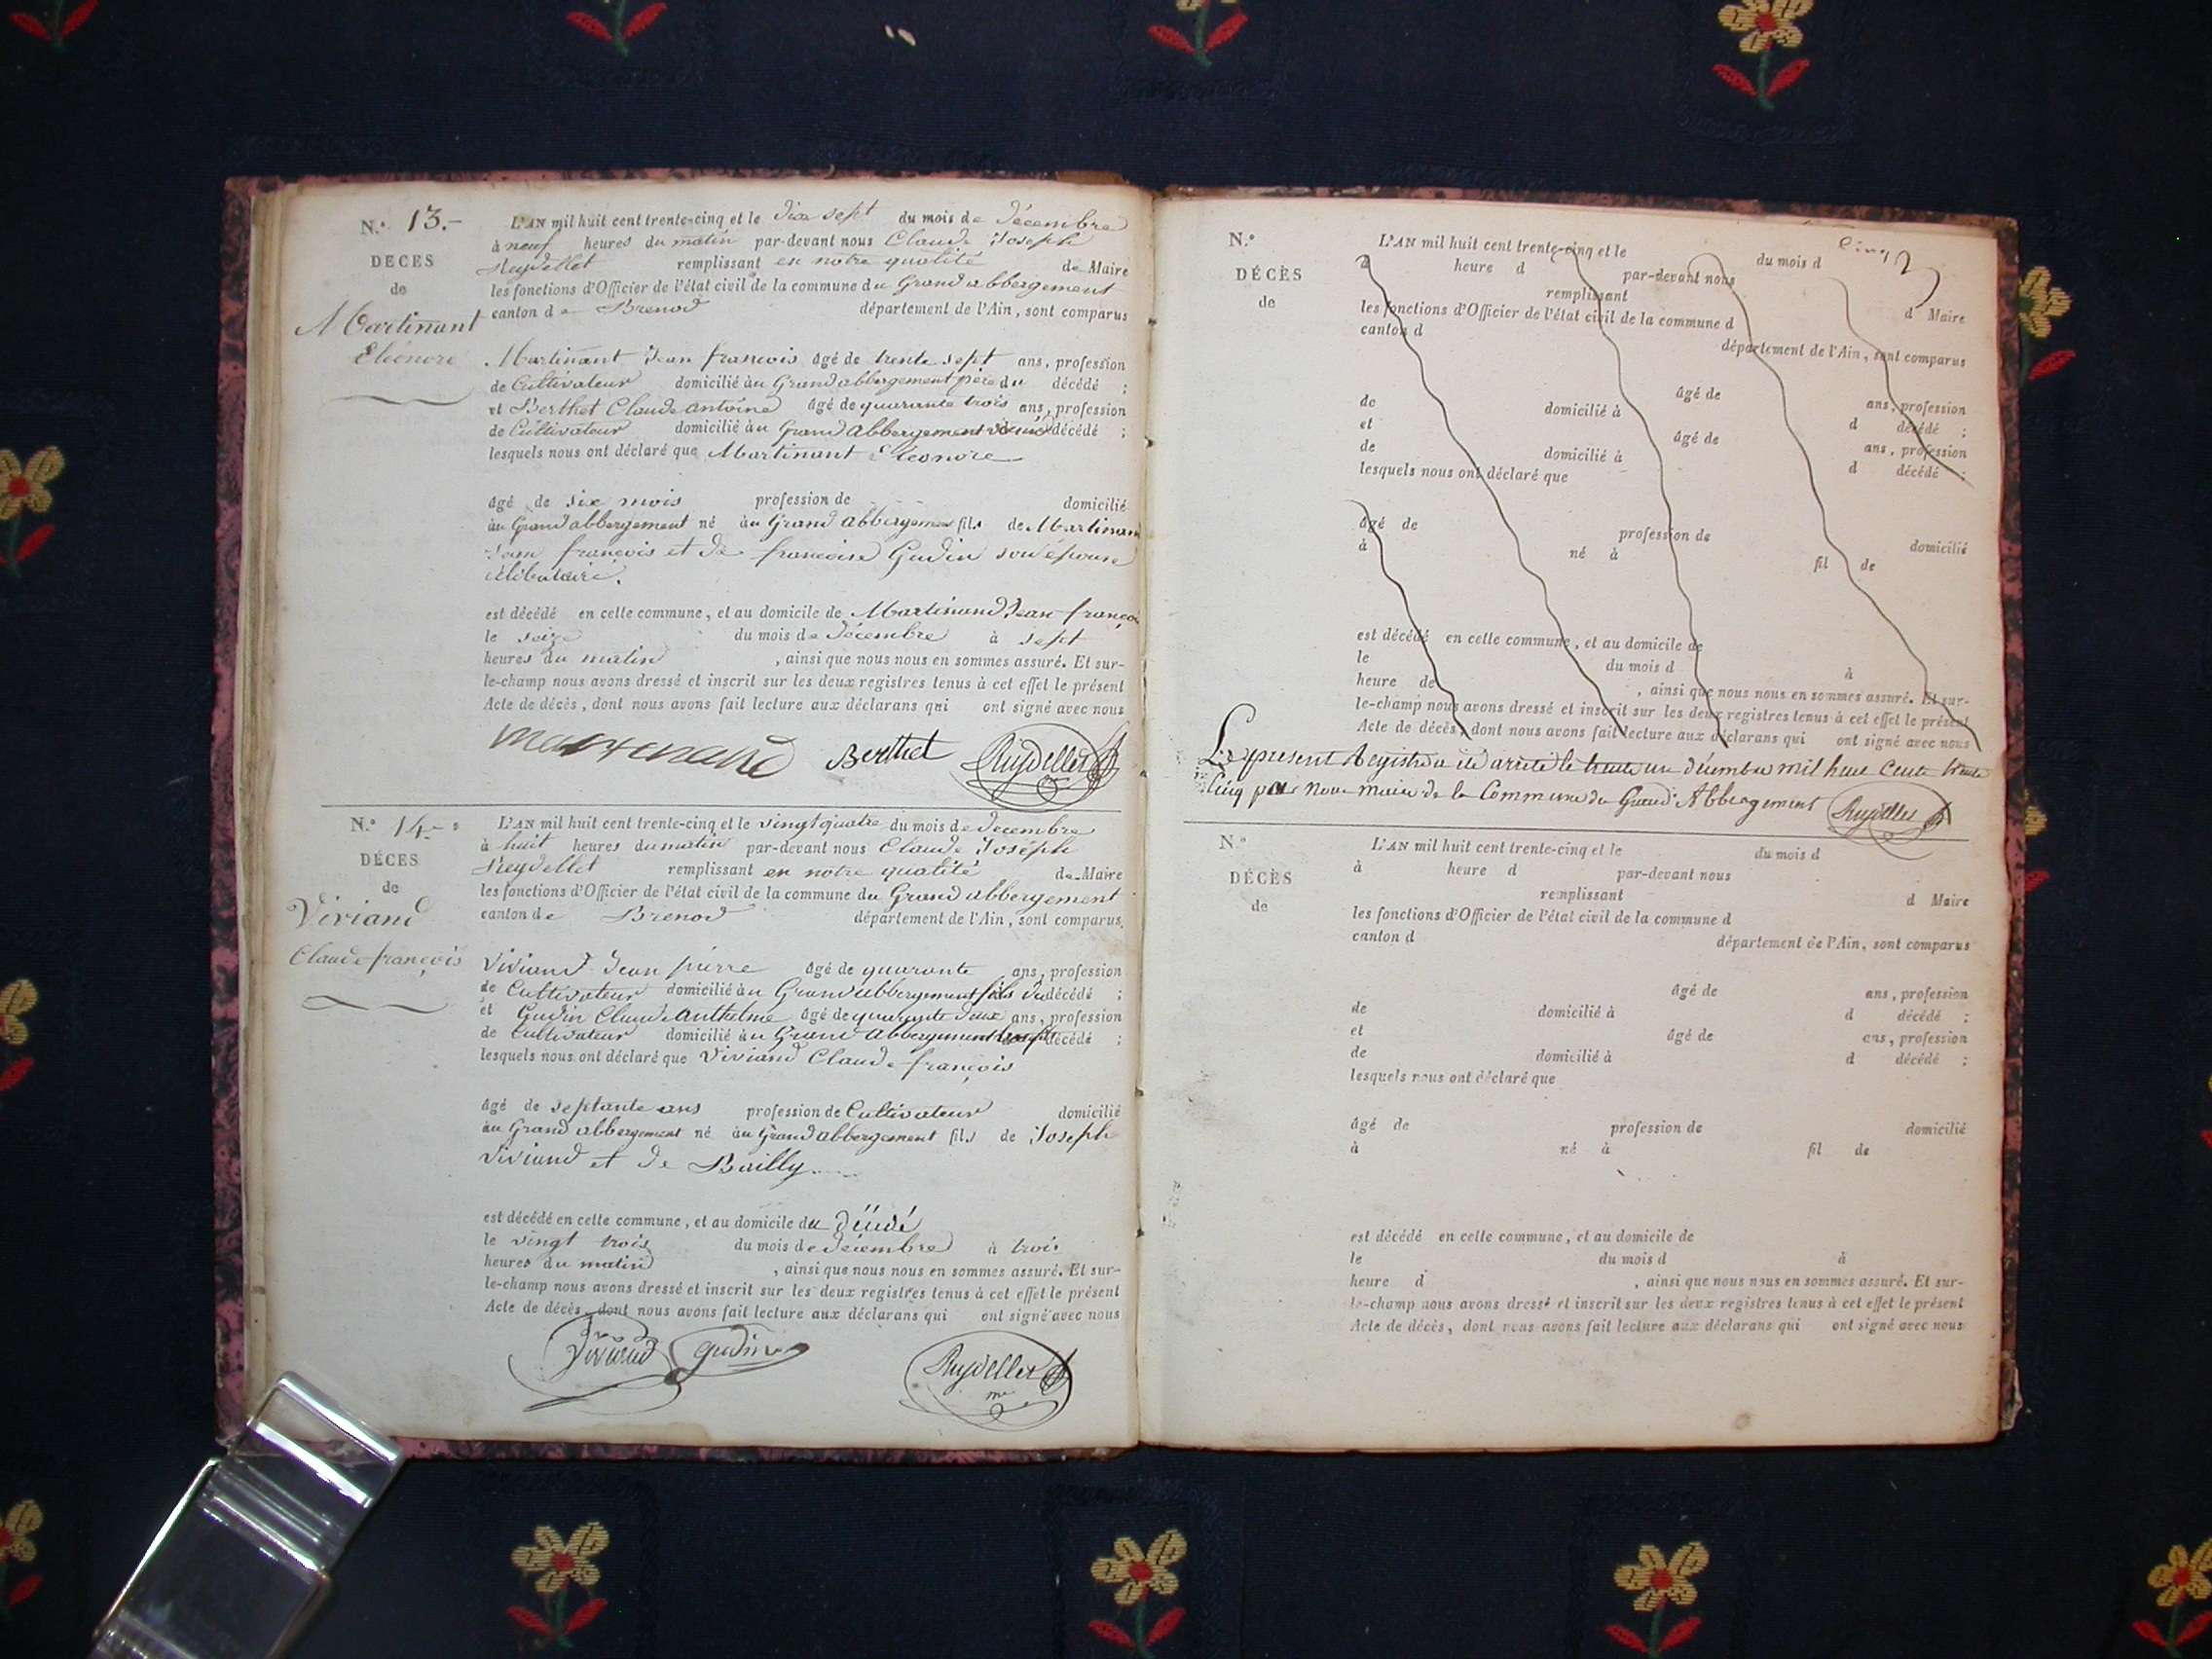 N.° 13.-
DECES
de
Martinant
Eléonore
L'AN mil huit cent trente-cinq et le dix sept du mois de Décembre
à neuf heures du matin par-devant nous Claude Joseph
Reydellet remplissant en notre qualité de Maire
les fonctions d'Officier de l'état civil de la commune du Grand abbergement
canton de Brenod département de l'Ain, sont comparus
Martinant Jean françois âgé de trente sept ans, profession
de Cultivateur domicilié au Grand abbergement père du décédé ;
et Berthet Claude antoine âgé de quarante trois ans, profession
de Cultivateur domicilié au Grand Abbergement décédé ;
lesquels nous ont déclaré que Martinant Eléonore
âgé de six mois profession de domicilié
au Grand abbergement né au Grand abbergement fils de Martinant
Jean françois et de francoise Gudin son épouse
célibataire.
est décédé en cette commune, et au domicile de Martinand Jean françois
le seize du mois de Décembre à sept
heures du matin , ainsi que nous nous en sommes assuré. Et sur-
le-champ nous avons dressé et inscrit sur les deux registres tenus à cet effet le présent
Acte de décès, dont nous avons fait lecture aux déclarans qui ont signé avec nous
Berthet Reydellet
N.° 14.-
DÉCES
de
Viviand
Claude françois
L'AN mil huit cent trente-cinq et le vingt quatre du mois de Decembre
à huit heures du matin par-devant nous Claude Joséph
Reydellet remplissant en notre qualité de Maire
les fonctions d'Officier de l'état civil de la commune du Grand abbergement
canton de Brenod département de l'Ain, sont comparus
Viviand Jean pierre âgé de quarante ans, profession
de Cultivateur domicilié au Grand abbergement fils du décédé ;
et Gudin Claude Anthelme âgé de quarante deux ans, profession
de Cultivateur domicilié au Grand abbergement décédé ;
lesquels nous ont déclaré que Viviand Claude françois
âgé de septante ans profession de Cultivateur domicilié
au Grand abbergement né au Grand abbergement fils de Joseph
Viviand et de Bailly
est décédé en cette commune, et au domicile du décédé
le vingt trois du mois de décembre à trois
heures du matin , ainsi que nous nous en sommes assuré. Et sur-
le-champ nous avons dressé et inscrit sur les deux registres tenus à cet effet le présent
Acte de décès, dont nous avons fait lecture aux déclarans qui ont signé avec nous
Viviand gudin Reydellet
me
cinq
N.°
DÉCÈS
de
L'AN mil huit cent trente-cinq et le du mois d
à heure d par-devant nous
remplissant d Maire
les fonctions d'Officier de l'état civil de la commune d
canton d département de l'Ain, sont comparus
âgé de ans, profession
de domicilié à d décédé ;
et âgé de ans, profession
de domicilié à d décédé ;
lesquels nous ont déclaré que
âgé de profession de domicilié
à né à fil de
est décédé en cette commune, et au domicile de
le du mois d à
heure de , ainsi que nous nous en sommes assuré. Et sur-
le-champ nous avons dressé et inscrit sur les deux registres tenus à cet effet le présent
Acte de décès, dont nous avons fait lecture aux déclarans qui ont signé avec nous
Le present Registre a été arrêté le trente un décembre mil huit cent trente
Cinq par Nous maire de la Commune du Grand Abbergement Reydellet
N.°
DÉCÈS
de
L'AN mil huit cent trente-cinq et le du mois d
à heure d par-devant nous
remplissant d Maire
les fonctions d'Officier de l'état civil de la commune d
canton d département de l'Ain, sont comparus
âgé de ans, profession
de domicilié à d décédé ;
et âgé de ans, profession
de domicilié à d décédé ;
lesquels nous ont déclaré que
âgé de profession de domicilié
à né à fil de
est décédé en cette commune, et au domicile de
le du mois d à
heure d , ainsi que nous nous en sommes assuré. Et sur-
le-champ nous avons dressé et inscrit sur les deux registres tenus à cet effet le présent
Acte de décès, dont nous avons fait lecture aux déclarans qui ont signé avec nous